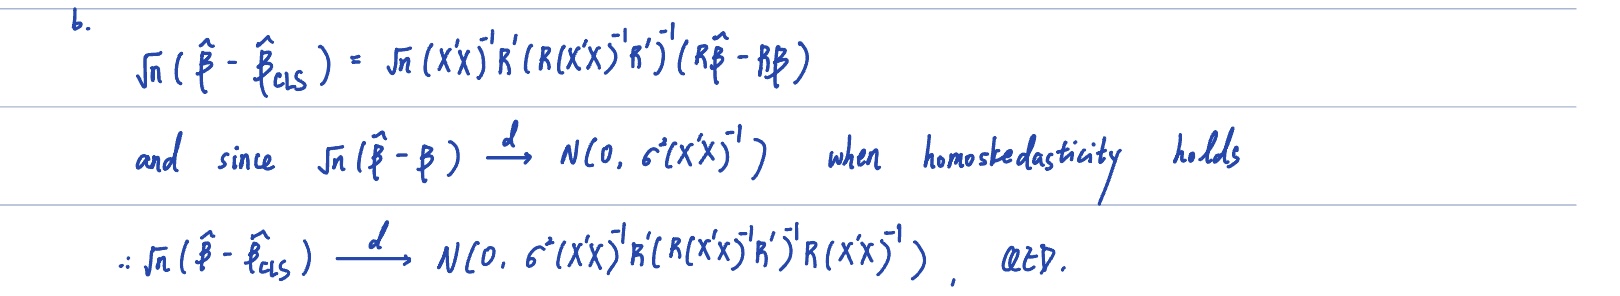 b.
√n (β̂ - β̂_CLS) = √n (X'X)⁻¹R'(R(X'X)⁻¹R')⁻¹(Rβ̂ - Rβ)
and since √n (β̂ - β) →ᵈ N(0, σ²(X'X)⁻¹) when homoskedasticity holds
∴ √n (β̂ - β̂_CLS) →ᵈ N(0, σ²(X'X)⁻¹R'(R(X'X)⁻¹R')⁻¹R(X'X)⁻¹), QED.